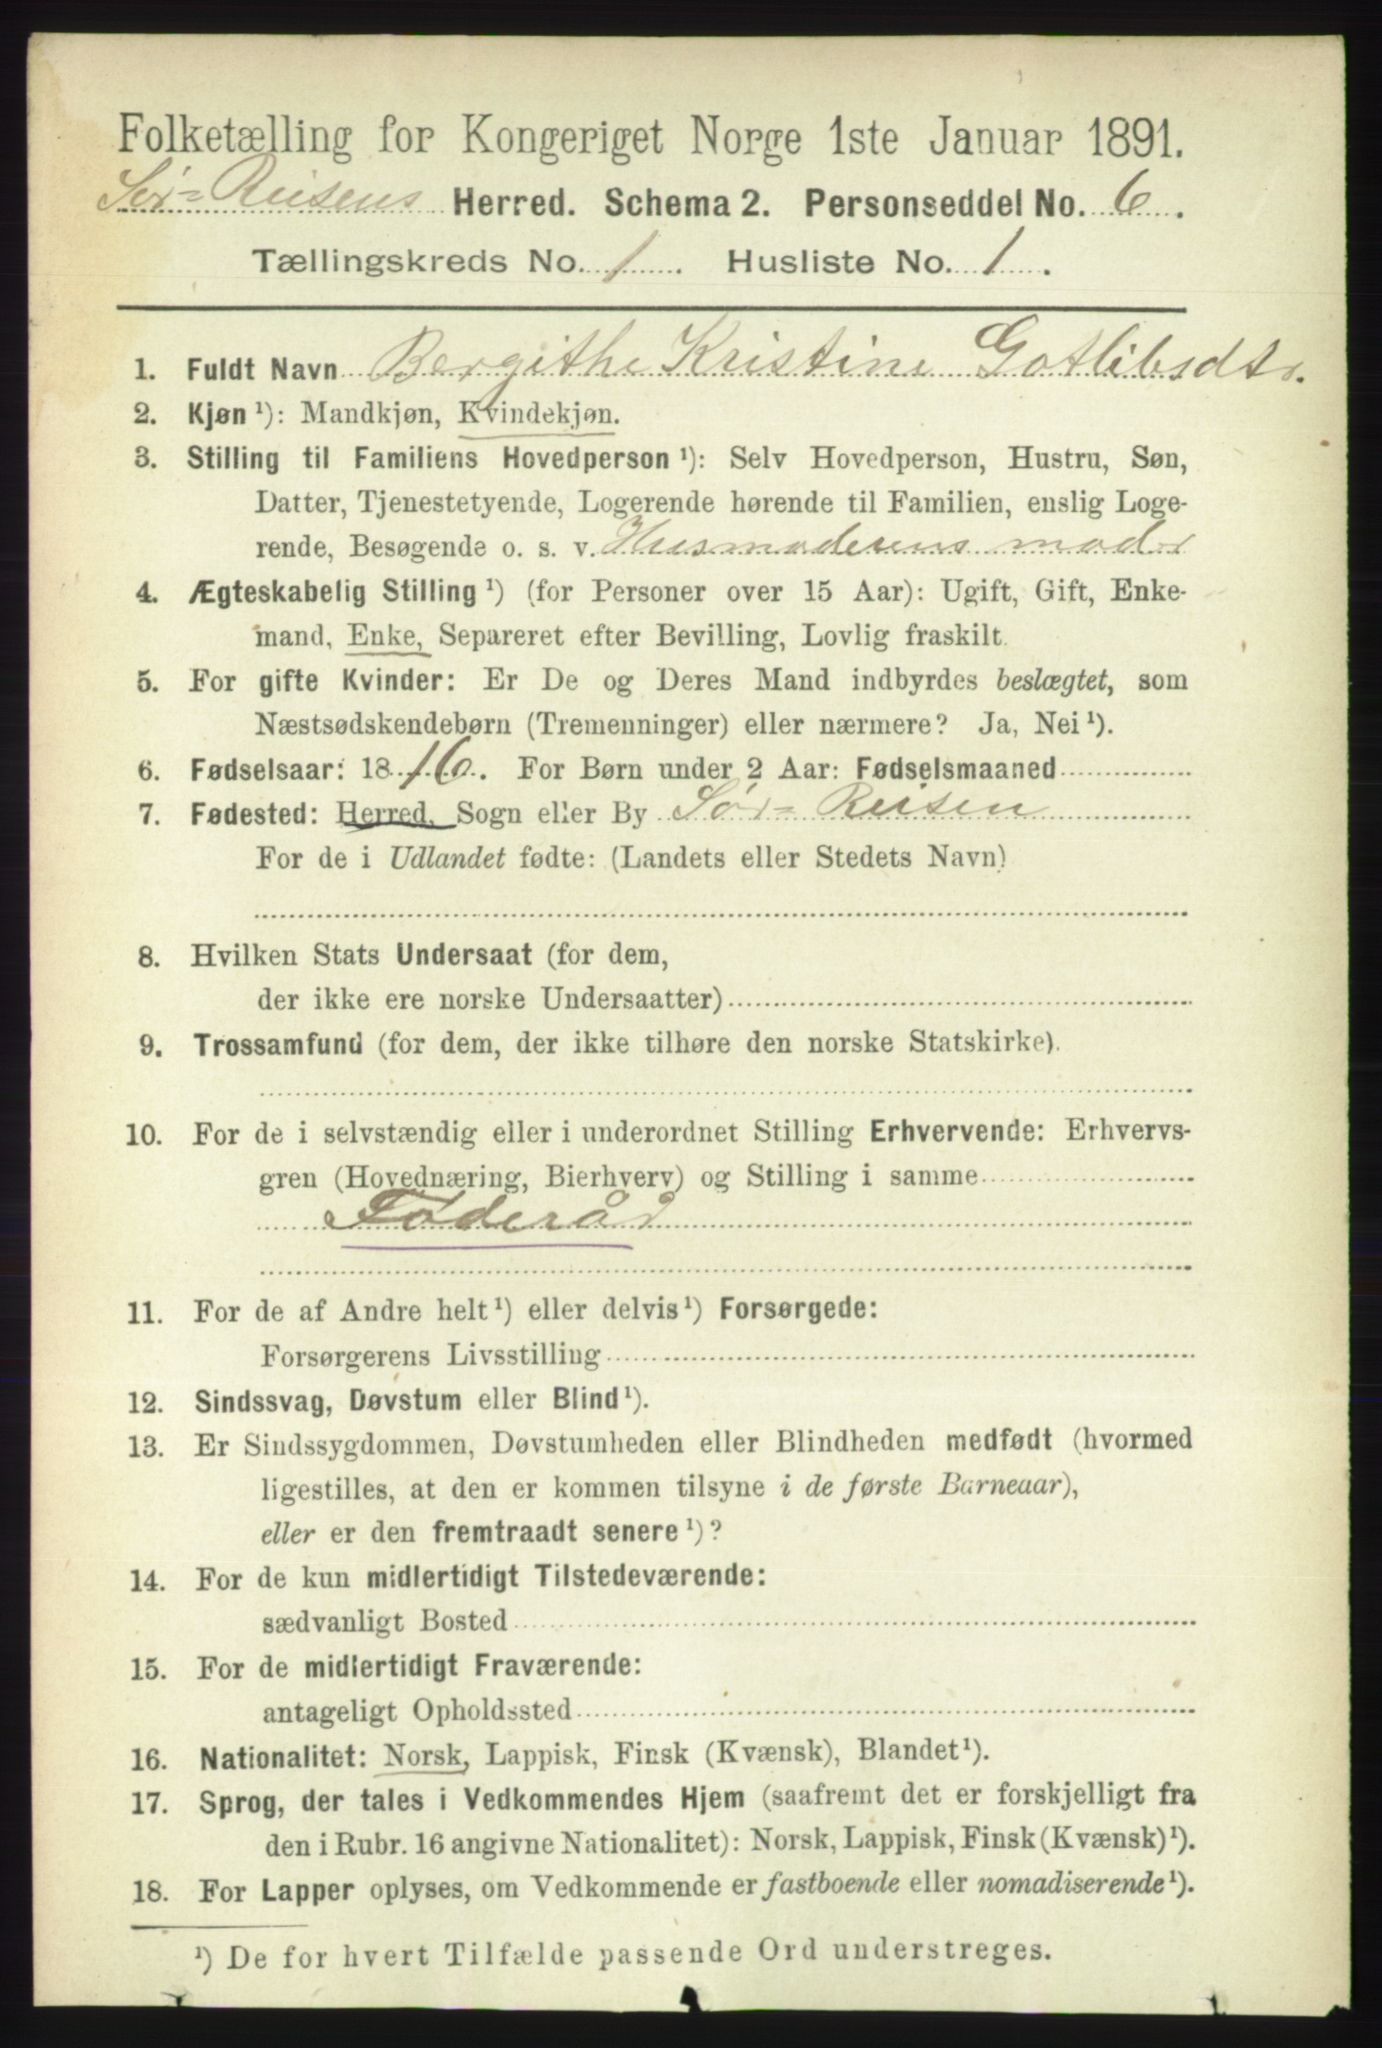 Folketælling for Kongeriget Norge 1ste Januar 1891.
Sør-Reisens Herred. Schema 2. Personseddel No. 6.
Tællingskreds No. 1. Husliste No. 1.
1. Fuldt Navn Bergithe Kristine Gotlibsdtr.
2. Kjøn ¹): Mandkjøn, Kvindekjøn.
3. Stilling til Familiens Hovedperson ¹): Selv Hovedperson, Hustru, Søn,
Datter, Tjenestetyende, Logerende hørende til Familien, enslig Loge-
rende, Besøgende o. s. v. Husmoderens moder
4. Ægteskabelig Stilling ¹) (for Personer over 15 Aar): Ugift, Gift, Enke-
mand, Enke, Separeret efter Bevilling, Lovlig fraskilt.
5. For gifte Kvinder: Er De og Deres Mand indbyrdes beslægtet, som
Næstsødskendebørn (Tremenninger) eller nærmere? Ja, Nei ¹).
6. Fødselsaar: 1816. For Børn under 2 Aar: Fødselsmaaned
7. Fødested: Herred, Sogn eller By Sør-Reisen
For de i Udlandet fødte: (Landets eller Stedets Navn)
8. Hvilken Stats Undersaat (for dem,
der ikke ere norske Undersaatter)
9. Trossamfund (for dem, der ikke tilhøre den norske Statskirke).
10. For de i selvstændig eller i underordnet Stilling Erhvervende: Erhvervs-
gren (Hovednæring, Bierhverv) og Stilling i samme
Føderåd
11. For de af Andre helt ¹) eller delvis ¹) Forsørgede:
Forsørgerens Livsstilling
12. Sindssvag, Døvstum eller Blind ¹).
13. Er Sindssygdommen, Døvstumheden eller Blindheden medfødt (hvormed
ligestilles, at den er kommen tilsyne i de første Barneaar),
eller er den fremtraadt senere ¹)?
14. For de kun midlertidigt Tilstedeværende:
sædvanligt Bosted
15. For de midlertidigt Fraværende:
antageligt Opholdssted
16. Nationalitet: Norsk, Lappisk, Finsk (Kvænsk), Blandet ¹).
17. Sprog, der tales i Vedkommendes Hjem (saafremt det er forskjelligt fra
den i Rubr. 16 angivne Nationalitet): Norsk, Lappisk, Finsk (Kvænsk) ¹).
18. For Lapper oplyses, om Vedkommende er fastboende eller nomadiserende ¹).
¹) De for hvert Tilfælde passende Ord understreges.